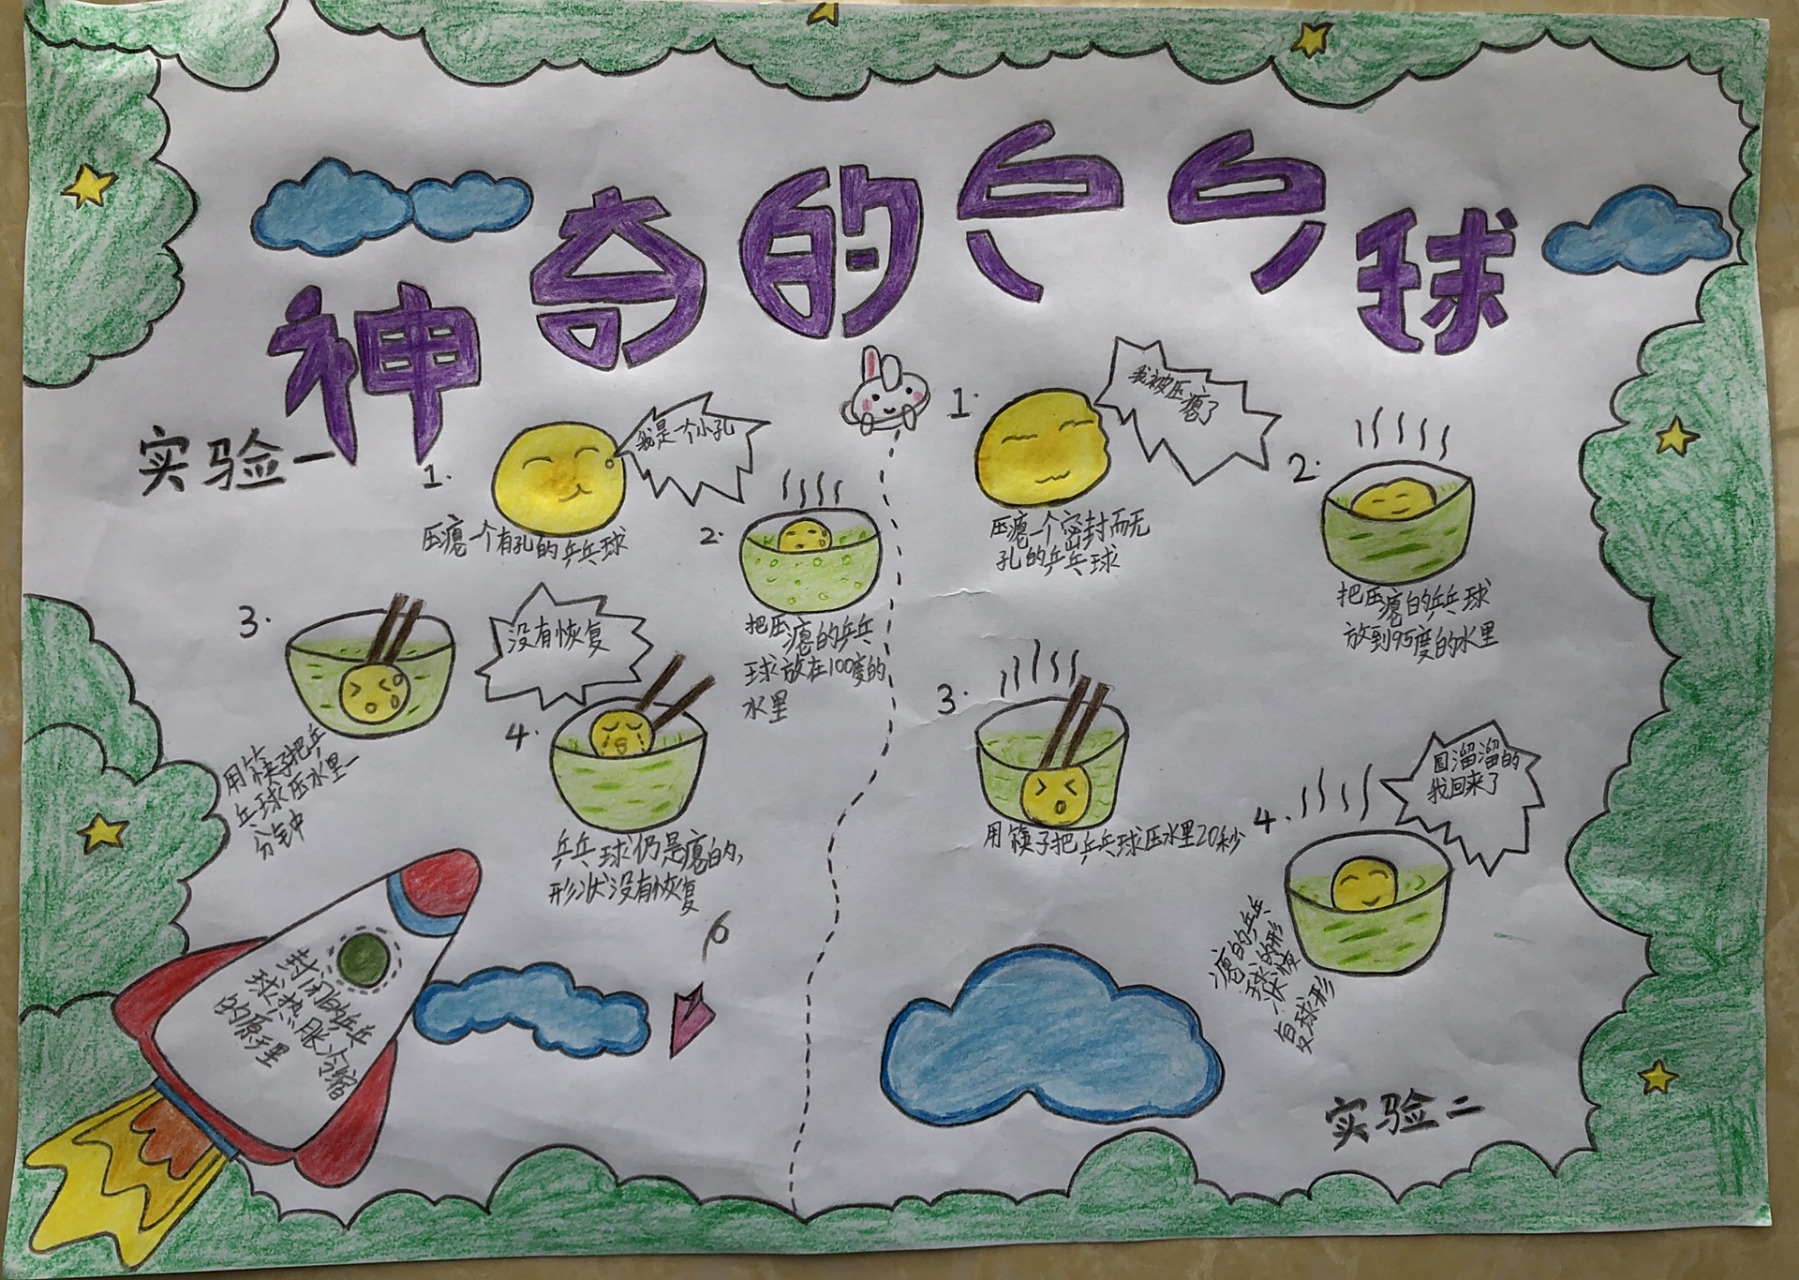 神奇的乒乓球
实验一
1.
我是一个小孔
压瘪一个有孔的乒乓球
2.
把压瘪的乒乓
球放在100度的
水里
3.
用筷子把乒
乓球压水里一
分钟
没有恢复
4.
乒乓球仍是瘪的,
形状没有恢复
封闭的乒乓
球热胀冷缩
的原理
1.
我被压瘪了
压瘪一个密封而无
孔的乒乓球
2.
把压瘪的乒乓球
放到95度的水里
3.
用筷子把乒乓球压水里20秒
4.
圆溜溜的
我回来了
瘪的乒乓
球的形
状恢
复球形
实验二